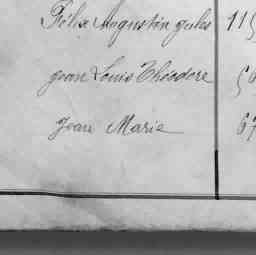 Félix Augustin Jules 115
Jean Louis Théodore
Jean Marie 67